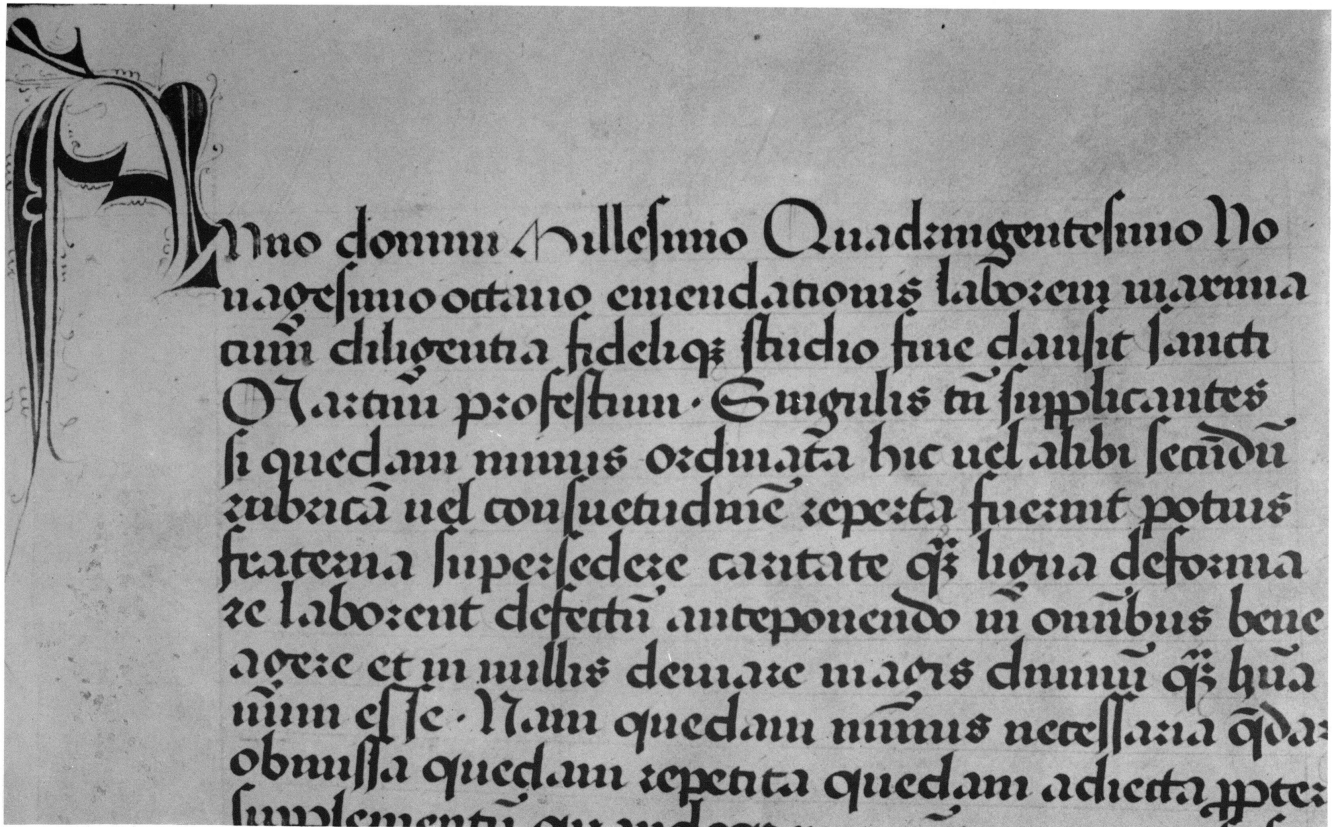 Anno domini Millesimo Quadringentesimo No
nagesimo octauo emendationis laborem maxima
cum̄ diligentia fideliqꝫ studio fine clausit sancti
Martini profestum · Singulis tn̄ supplicantes
si quedam minus ordinata hic uel alibi secūdū
rubricā uel consuetudinē reperta fuerint potius
fraterna supersedere caritate qꝫ ligna deforma
re laborent defectū anteponendo in omībus bene
agere et in nullis deuiare magis diuinū qꝫ hūa
num esse · Nam quedam minus necessaria q̄dam
obmissa quedam repetita quedam adiecta ꝓpter
supplementū